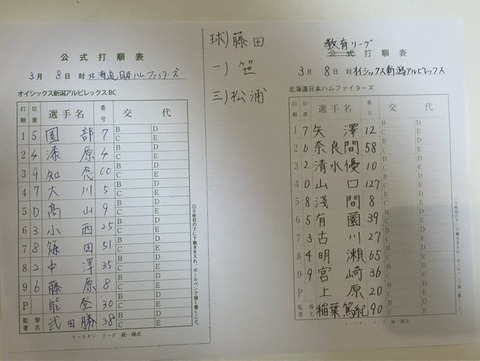 公式打順表
3月8日対北海道日本ハムファイターズ
オイシックス新潟アルビレックスBC
打順 位置 選手名 番号 交代
1 5 園部 7 B D C E
2 4 漆原 4 B D C E
3 9 知念 00 B D C E
4 7 大川 5 B D C E
5 D 高山 9 B D C E
6 3 小西 25 B D C E
7 8 篠田 51 B D C E
8 2 中澤 35 B D C E
9 6 藤原 8 B D C E
P 能登 30 B D C E
監督 署名 武田勝 38
イースタン・リーグ 統一様式
球)藤田
一)笹
三)松浦
教育リーグ
公式打順表
3月8日対オイシックス新潟アルビレックス
北海道日本ハムファイターズ
打順 位置 選手名 番号 交代
1 7 矢澤 12 B D C E
2 6 奈良間 58 B D C E
3 2 清水優 10 B D C E
4 D 山口 127 B D C E
5 8 浅間 8 B D C E
6 5 有薗 39 B D C E
7 3 古川 27 B D C E
8 4 明瀬 65 B D C E
9 9 宮崎 36 B D C E
P 上原 20 B D C E
監督 署名 稲葉篤紀 90